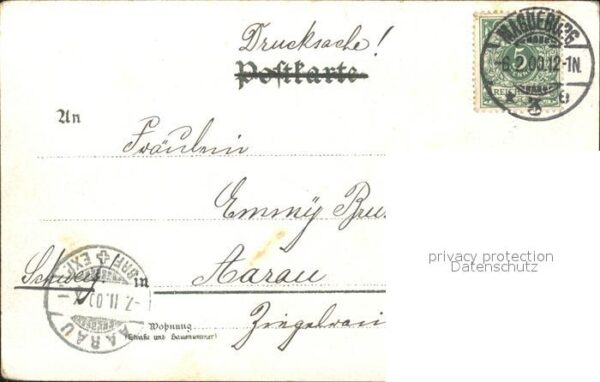 Drucksache!
Postkarte
MAGDEBURG
-6.2.00.12-1N.
5
REICHS
An
Fräulein
Emmy
privacy protection
Datenschutz
Schweiz in Aarau
BRF. EXP.
-7.II.00.
AARAU
Wohnung
(Straße und Hausnummer)